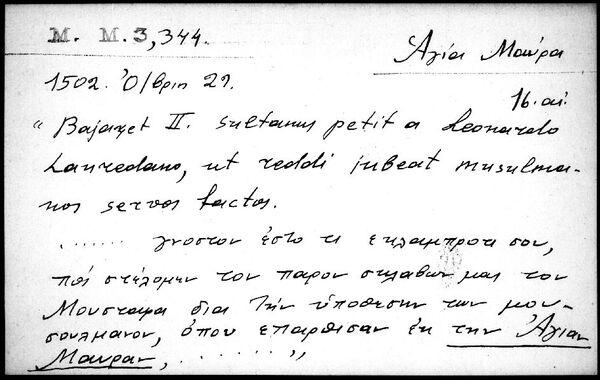 M. M. 3,344.
Ἁγία Μαύρα
1502. Ὀ/βριη 29.
16. αἰ.
"Bajazet II. Sultanus petit a Leonardo
Lauredano, ut reddi iubeat musulma-
nos servos factos.
....... γνοστον ἐστο τι εκλαμπροτι σου,
πός στέλομεν τον παρον σκλαβων μας τον
Μουσταφα δια τὴν ὑποθεσην των μου-
σουλμανον, ὁπου επαρθισαν ἐκ την Ἁγιαν
Μαυραν, ........"